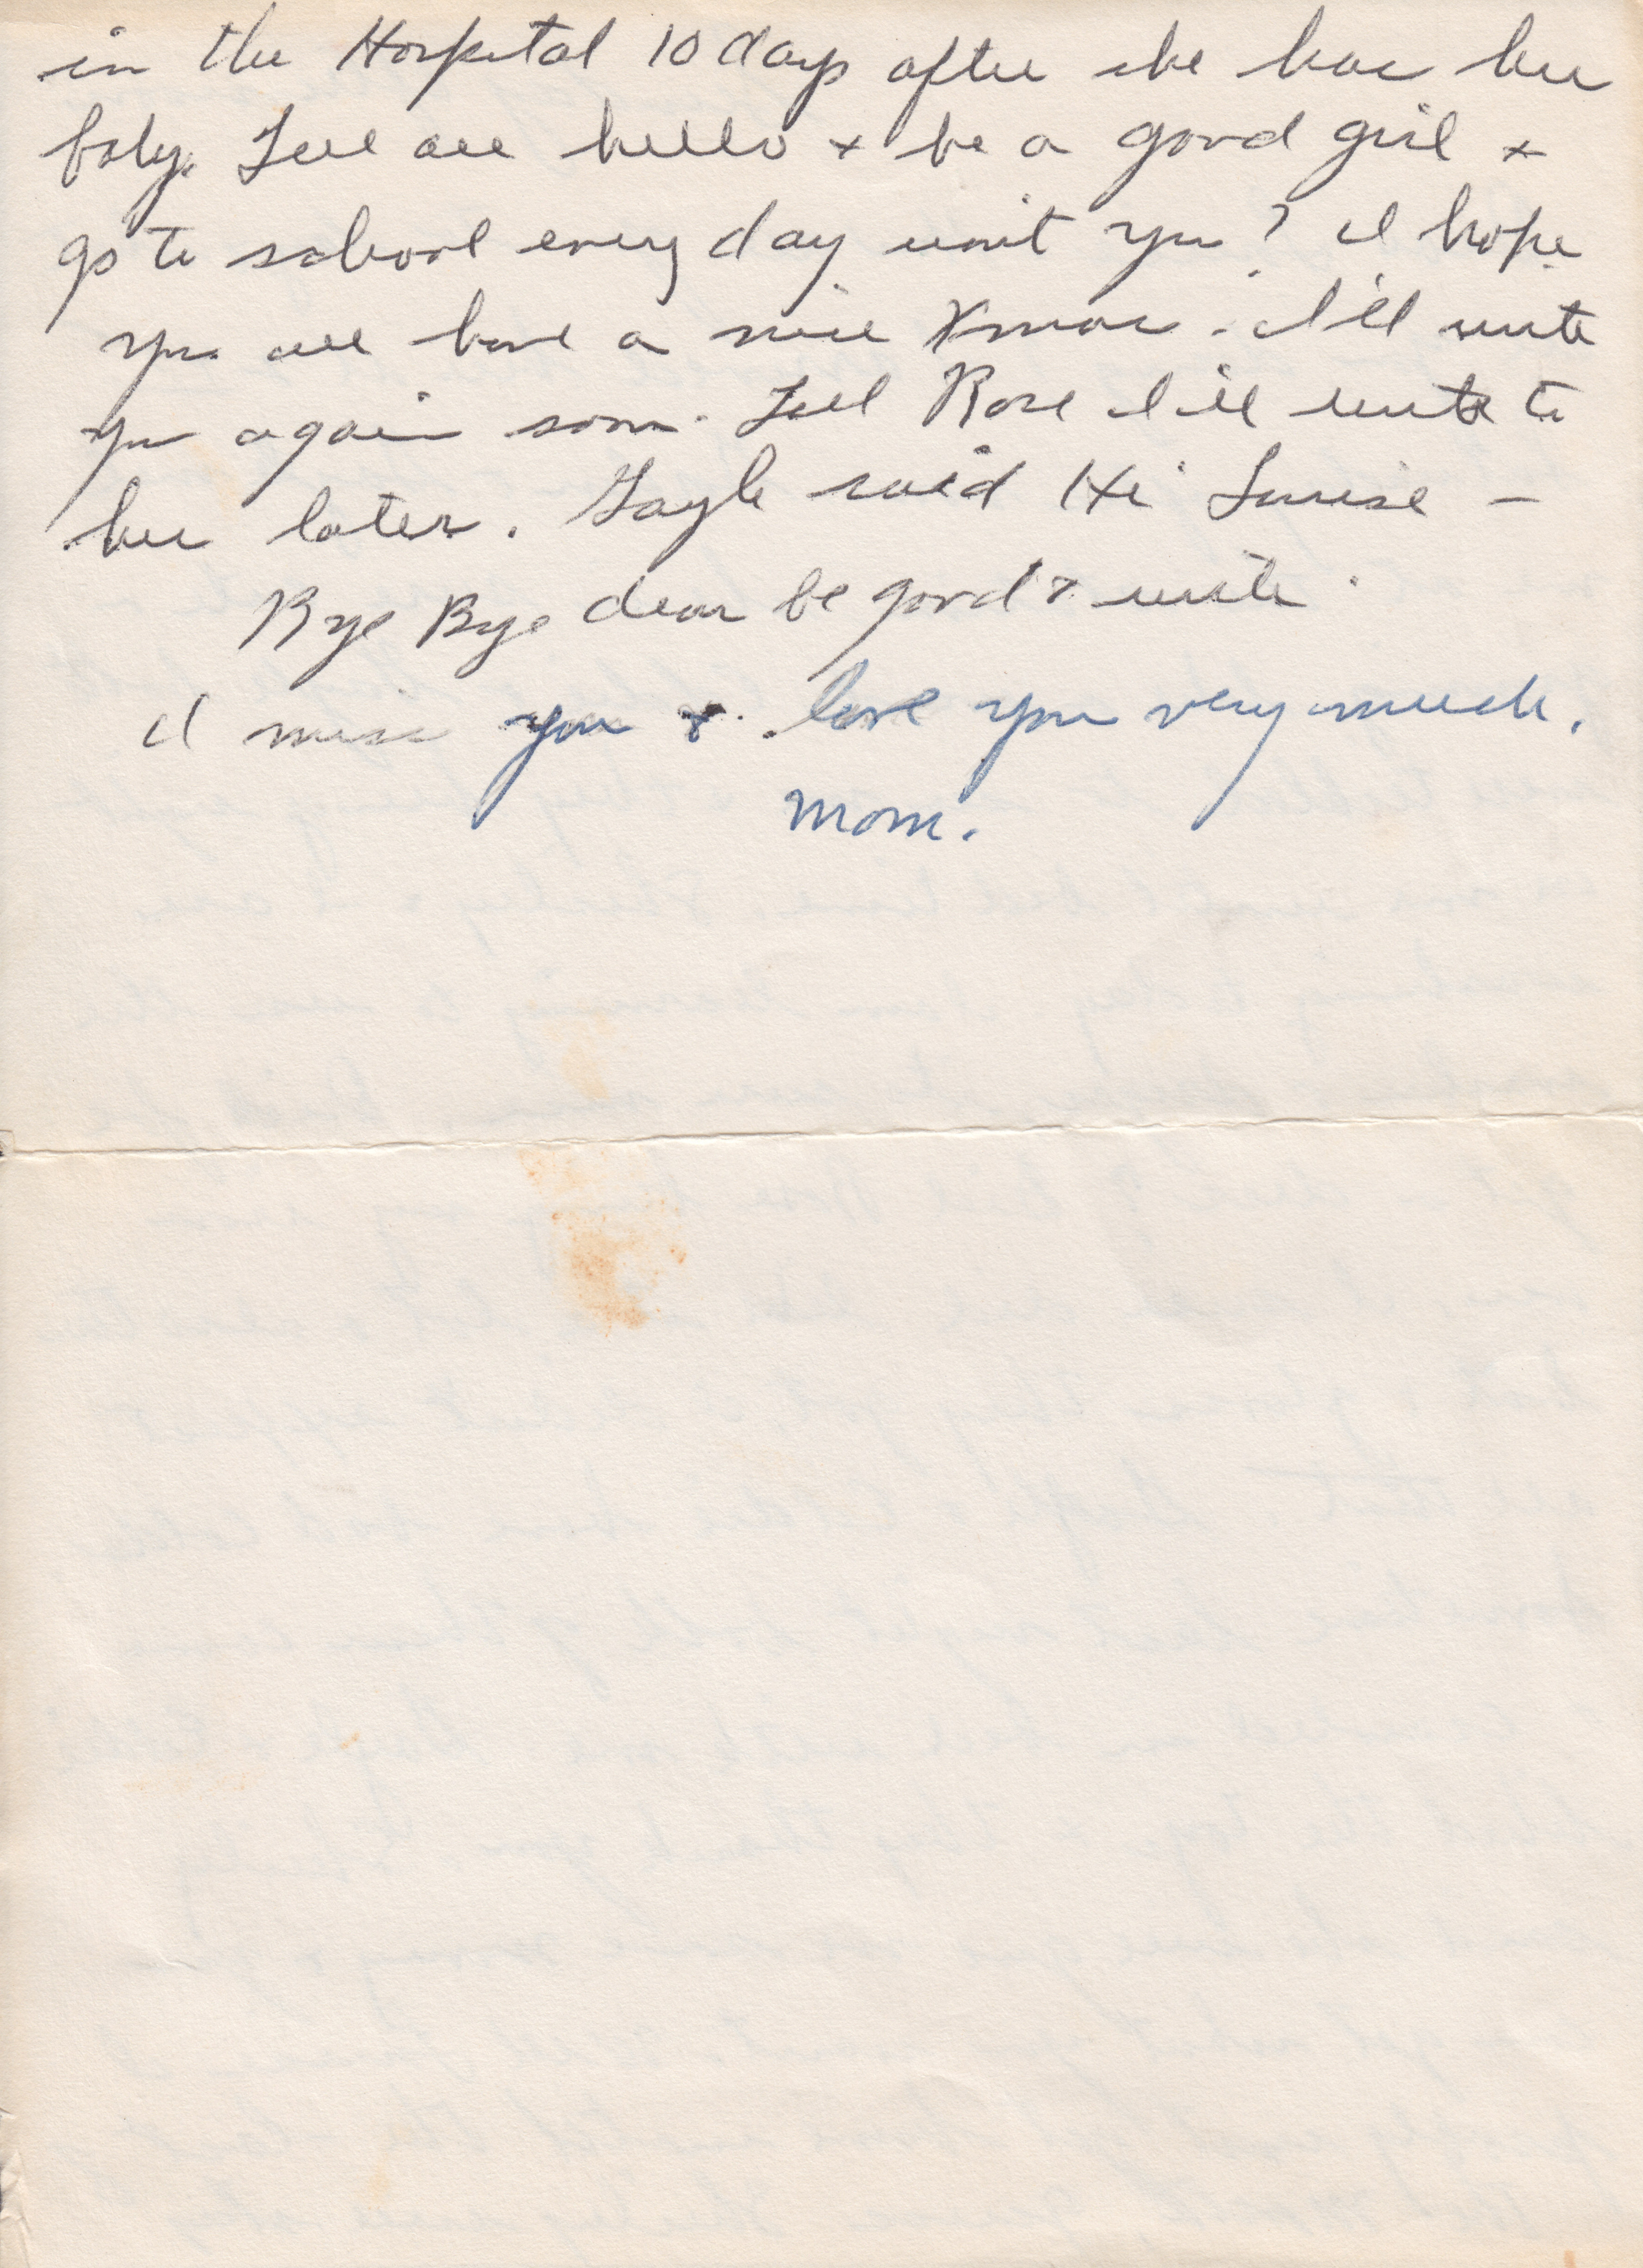 in the Hospital 10 days after she has her
baby. Tell all hello + be a good girl +
go to school every day won't you? I hope
you all have a nice Xmas. I'll write
you again soon. Tell Rose I'll write to
her later. Gayle said Hi Louise -
Bye Bye dear be good & write.
I miss you & love you very much.
Mom.